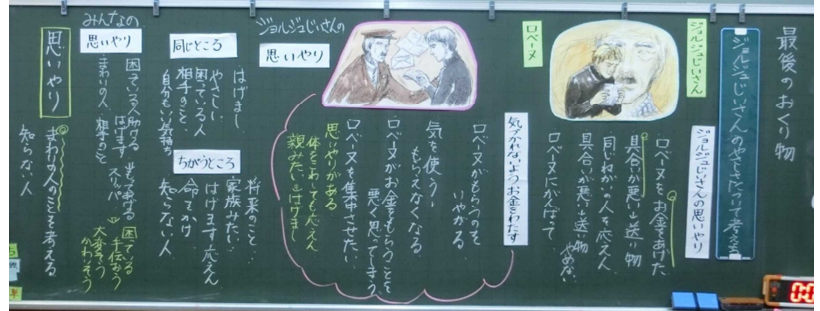 最後のおくり物
ジョルジュじいさんのやさしさについて考え
ジョルジュじいさん
ジョルジュじいさんの思いやり
ロベーヌにお金をあげた
具合が悪い↓送り物
同じねがいの人を応えん
具合が悪い↓送り物やめない
ロベーヌにがんばって
ロベーヌ
気づかれないようお金をわたす
ロベーヌがもらうのを
いやがる
気を使う↓
もらえなくなる
ロベーヌがお金をもらうことを
悪く思ってしまう
ロベーヌを集中させたい
思いやりがある
体をこわしても応えん
親みたい はげまし
ジョルジュじいさんの
思いやり
はげまし
やさしい
困っている人
相手のこと、
自分もいい気持ち
同じところ
ちがうところ
将来のこと
家族みたい
はげます応えん
命をかけ
知らない人
みんなの
思いやり
困っている人助ける
はげます
まわりの人
相手のこと
困っている
手伝おう
大変そう
かわいそう
思いやり
まわりの人のことを考える
知らない人